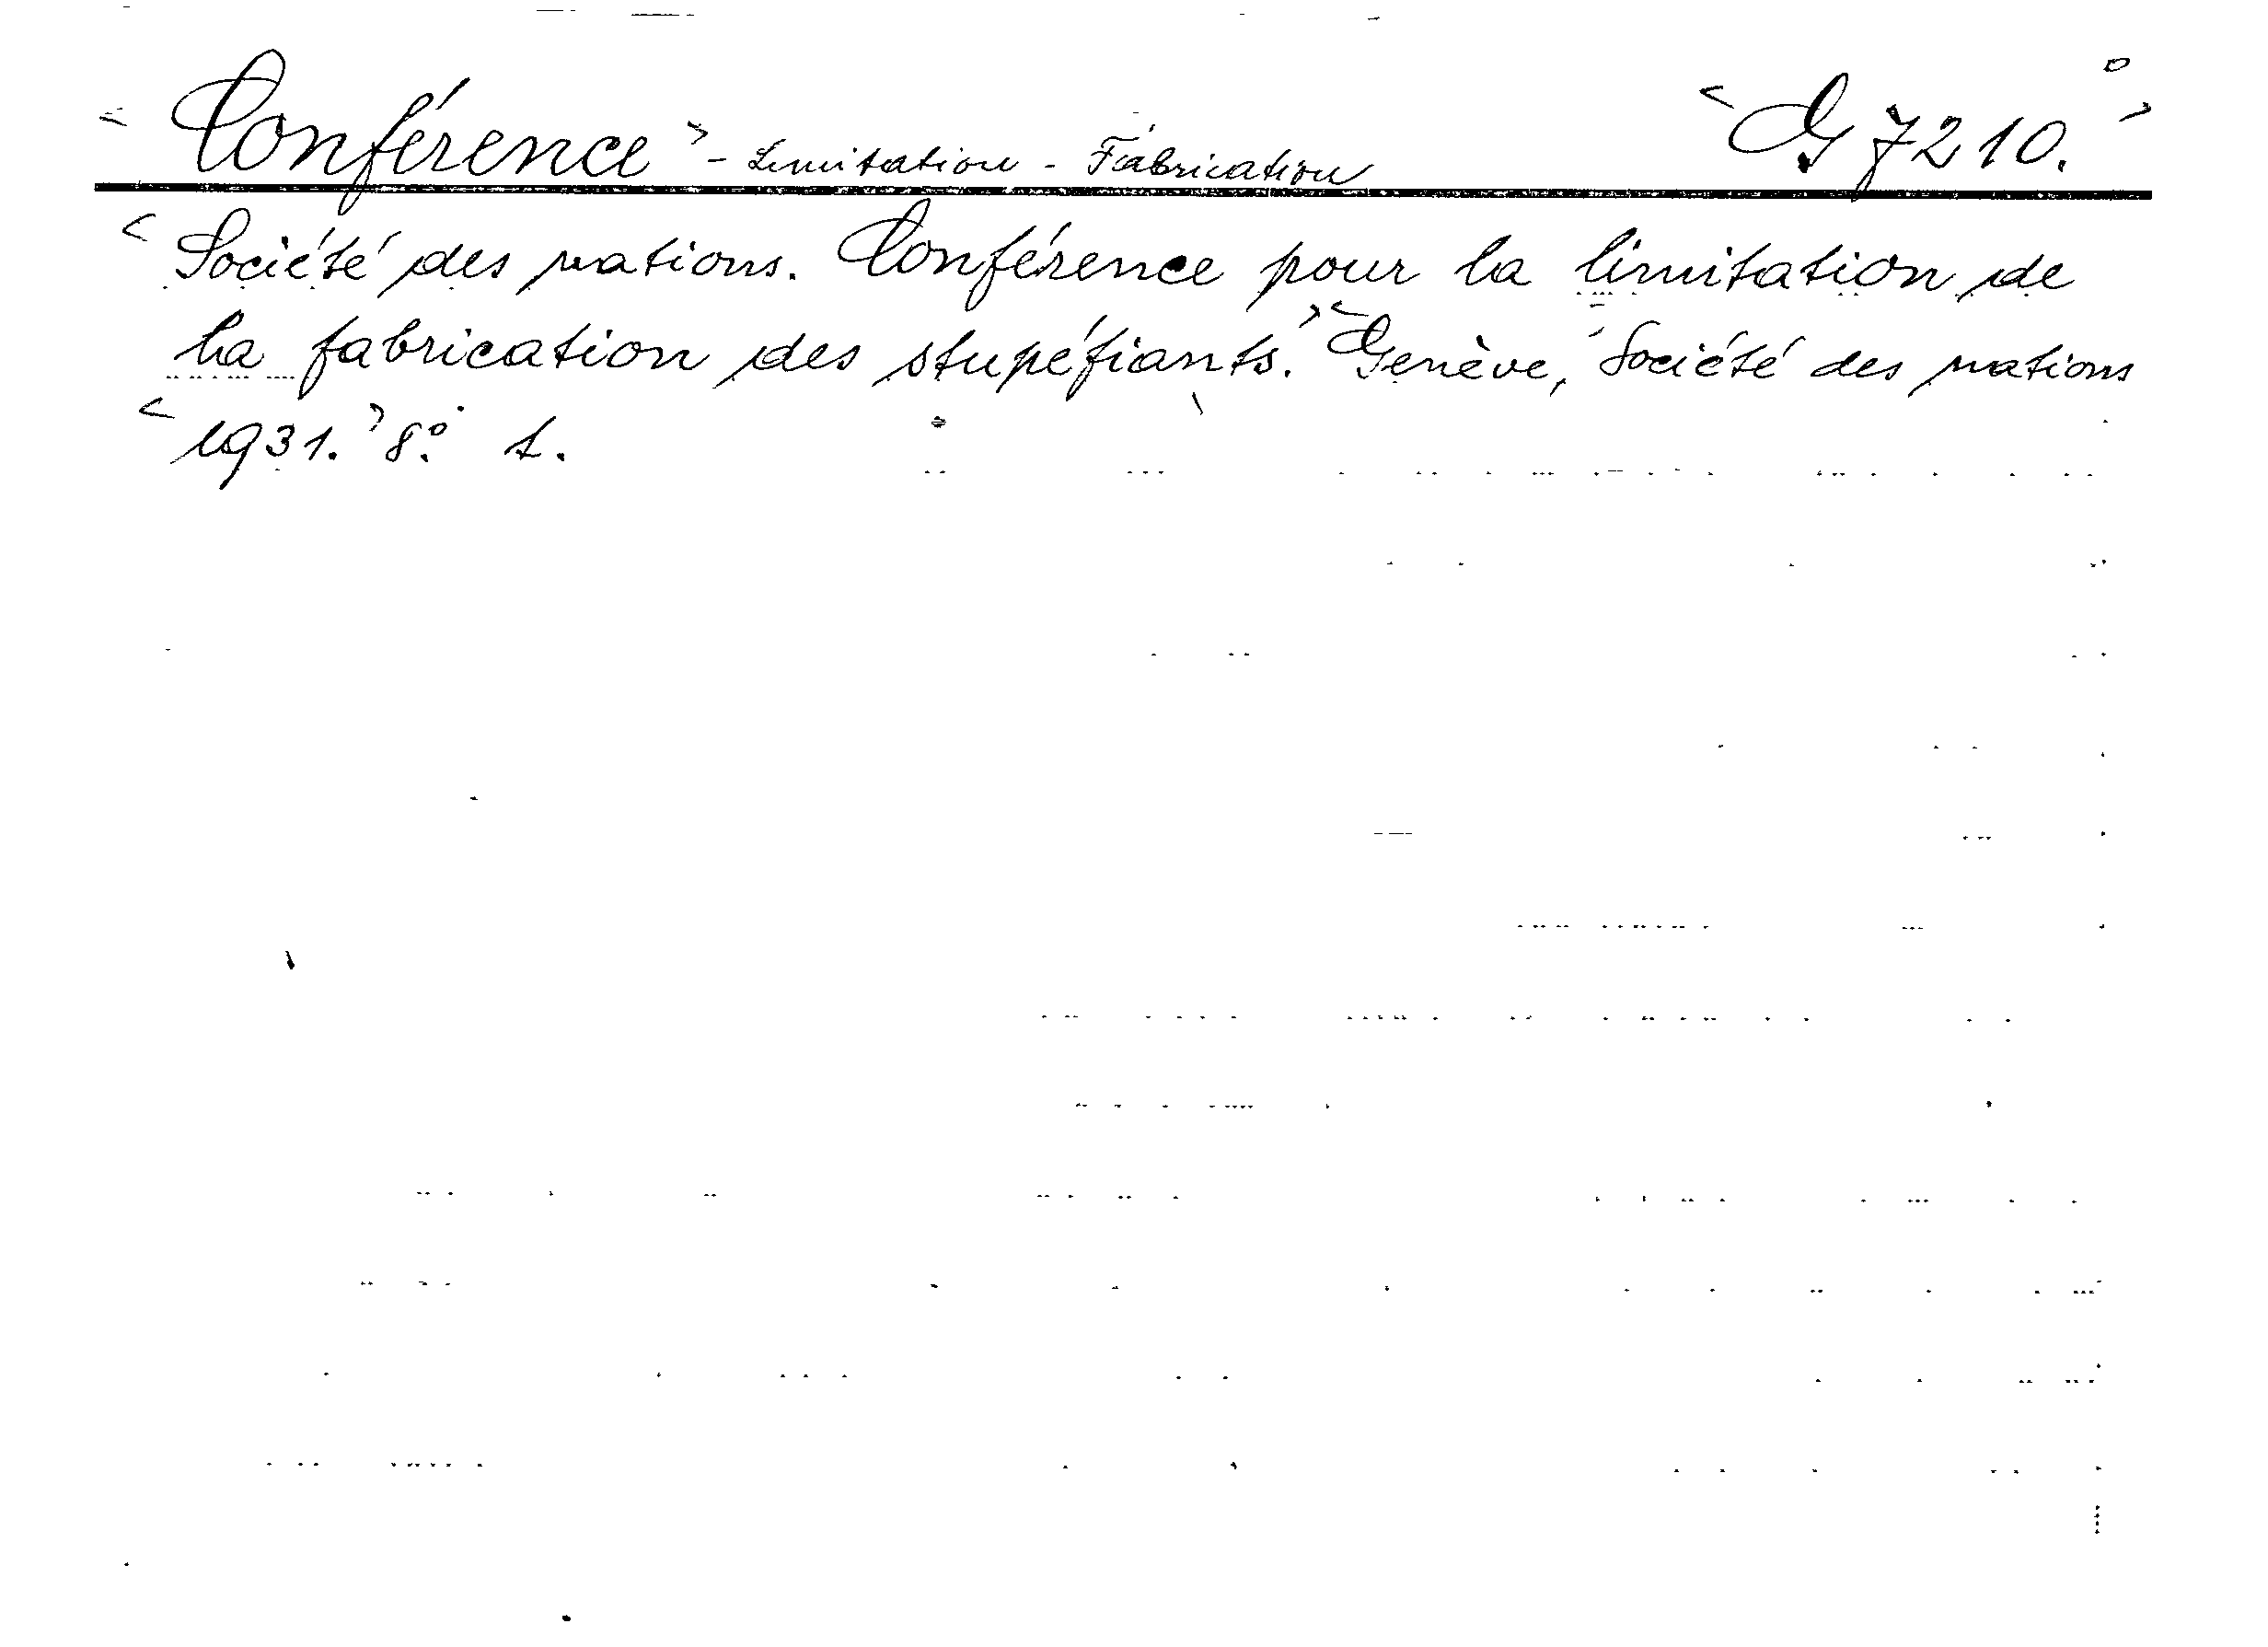 < Conférence > - Limitation - Fabrication < G 7210. >
< Société des nations. Conférence pour la limitation de
la fabrication des stupéfiants. > < Genève, Société des nations
< 1931. > 8º. 1.